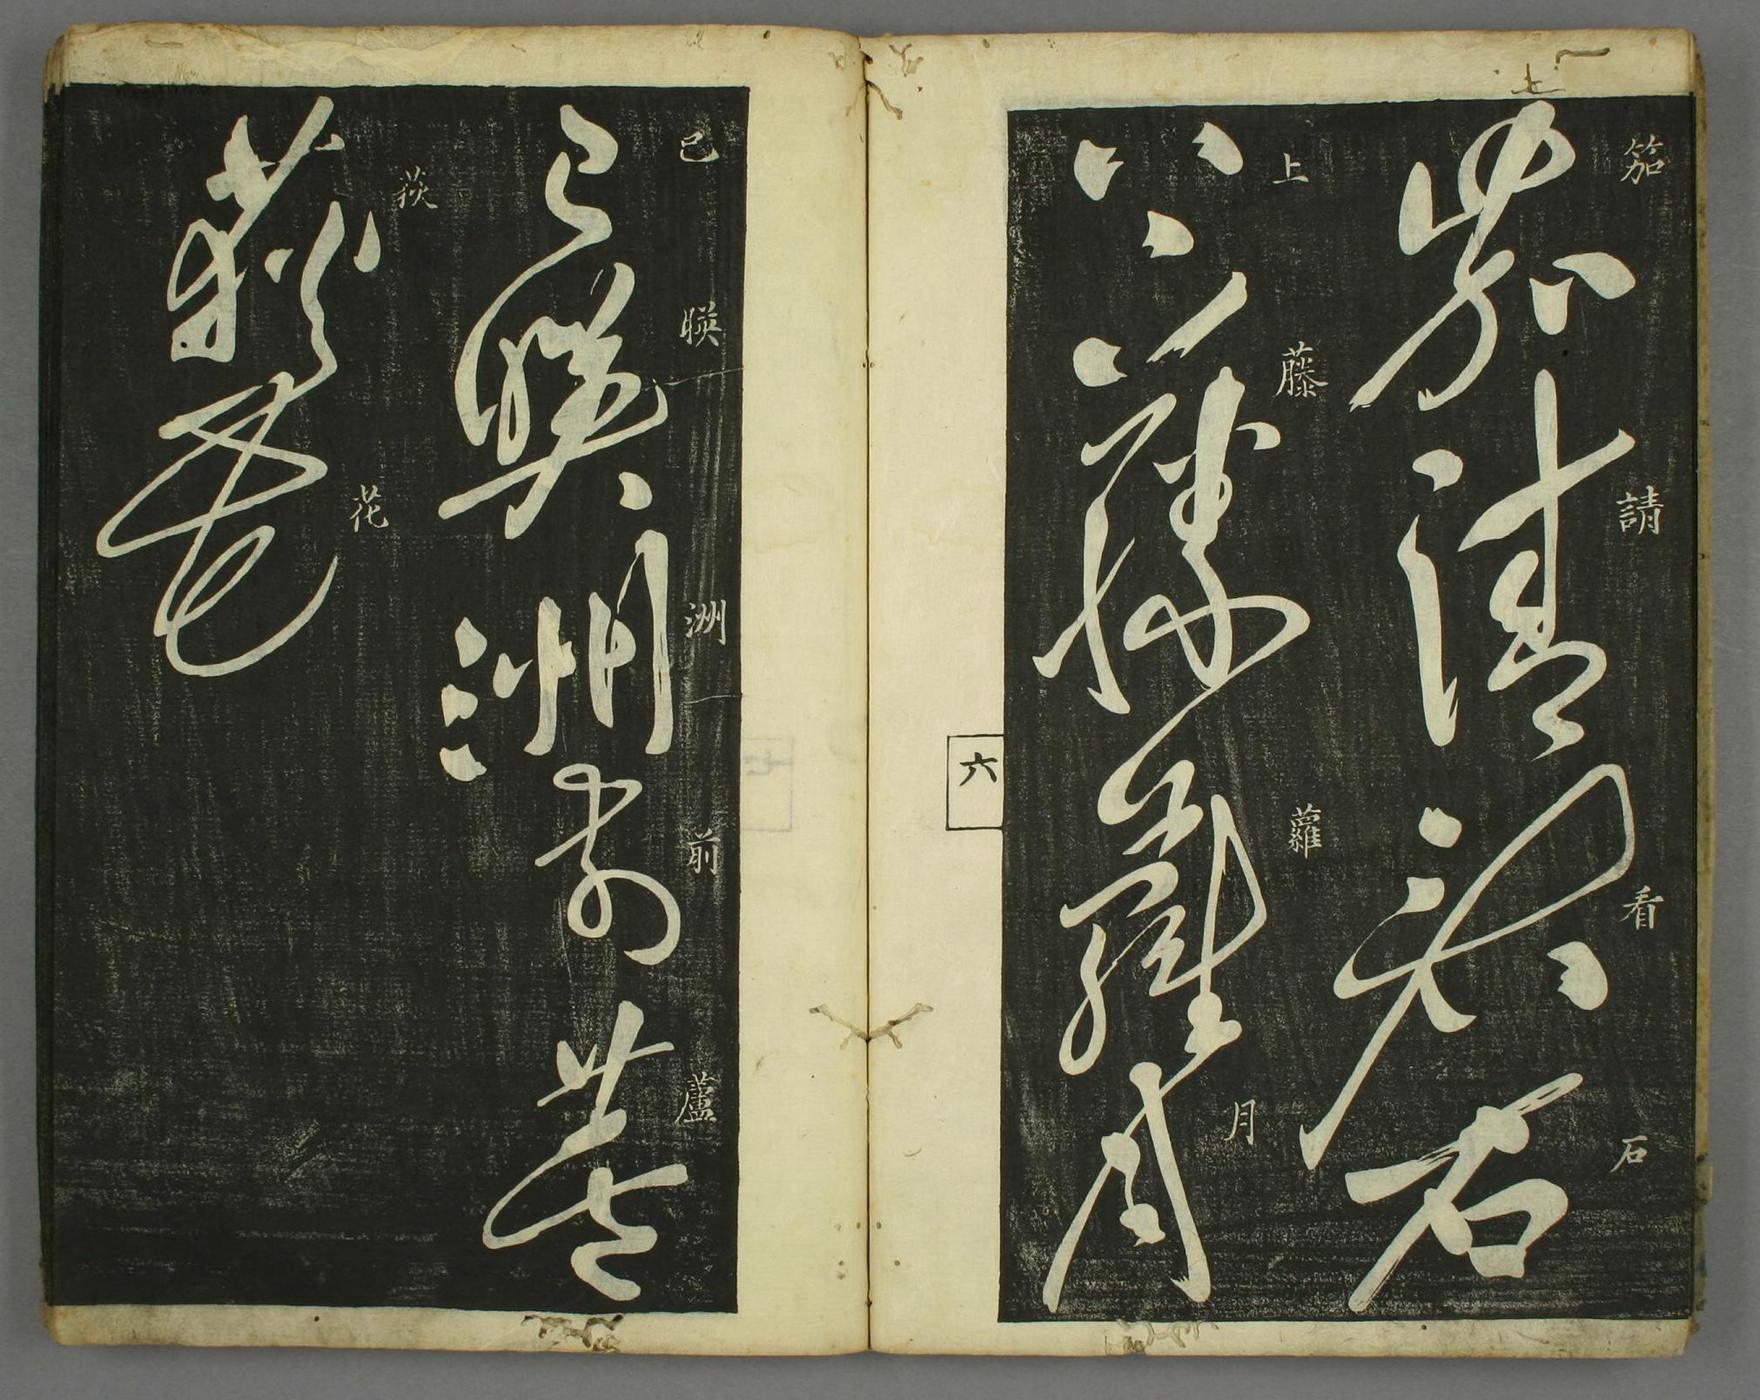 笳請看石
上藤蘿月
六
已暎洲前蘆
荻花